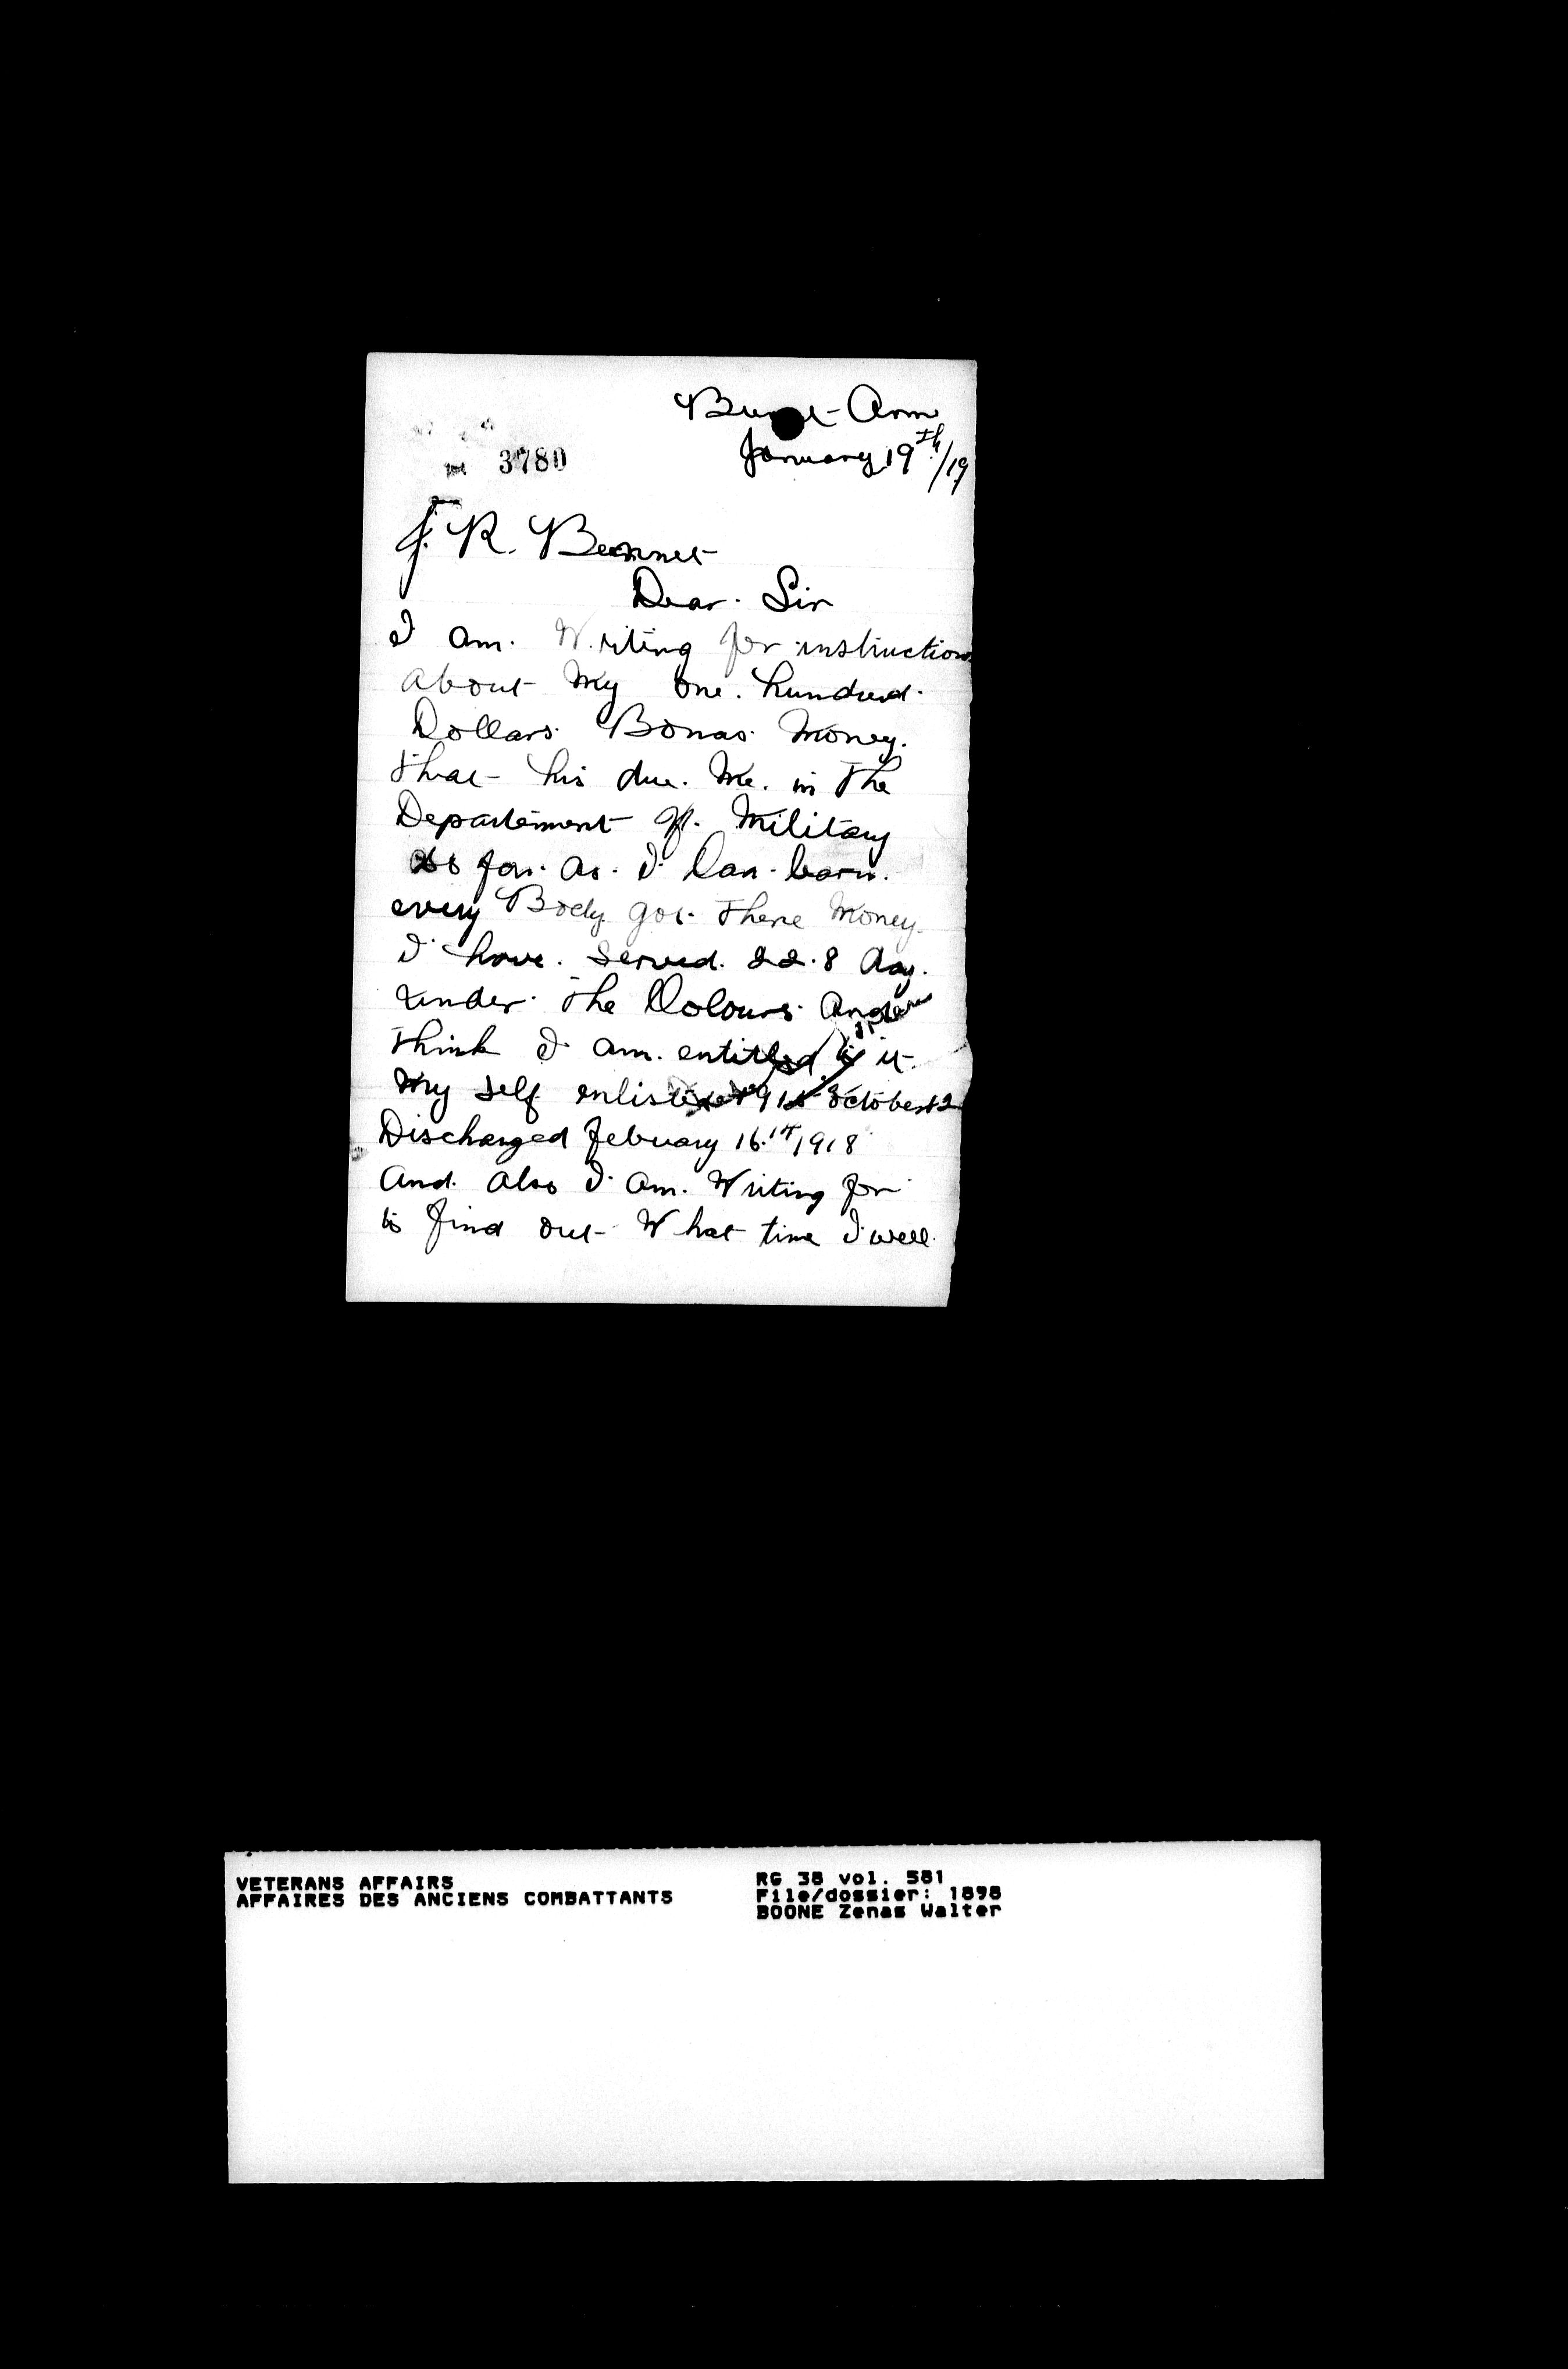 Burnt Arm
January 19th/19
3780
J. R. Bennet
Dear. Sir
I am. Writing for instruction
about My one. hundred.
Dollars. Bonas. Money.
that his due. Me. in The
Departement of. Military
as far. as. I Can. learn.
every Body. got. There Money.
I have. Served. 22.8 day.
under. The Colours. And
think I am. entitled to it.
My self enlisted October 2
Discharged Febuary 16.th 1918
And. also I am. Writing for
to find out What time I well.
VETERANS AFFAIRS
AFFAIRES DES ANCIENS COMBATTANTS
RG 38 vol. 581
File/dossier: 1898
BOONE Zenas Walter